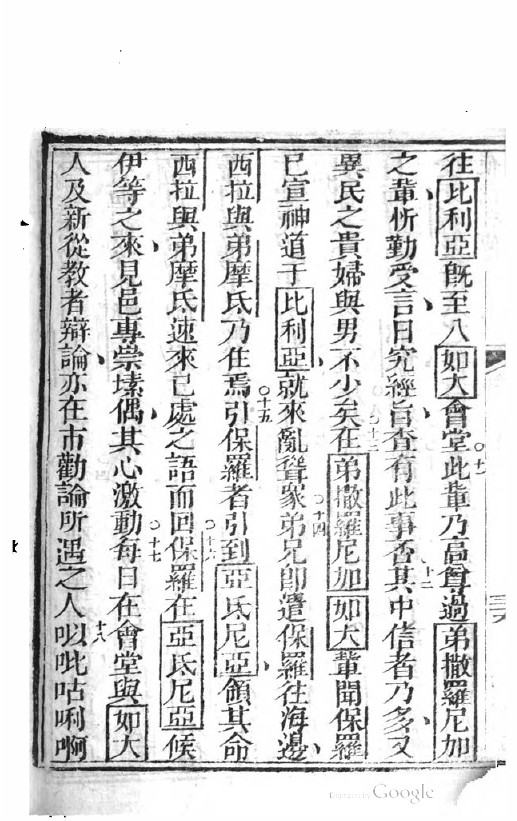 往比利亞既至入如大會堂○十一此輩乃高尊過弟撒羅尼加
之輩忻勤受言日究經旨查有此事否十二其中信者乃多又
異民之貴婦與男不少矣○十三在弟撒羅尼加如大輩聞保羅
已宣神道于比利亞就來亂聳眾○十四弟兄即遣保羅往海邊
西拉與弟摩氐乃住焉○十五引保羅者引到亞氐尼亞領其命
西拉與弟摩氐速來己處之語而回○十六保羅在亞氐尼亞候
伊等之來見邑專崇塑偶其心激動○十七每日在會堂與如大
人及新從教者辯論亦在市勸論所遇之人十八㕥吡咕唎啊
Digitized by Google